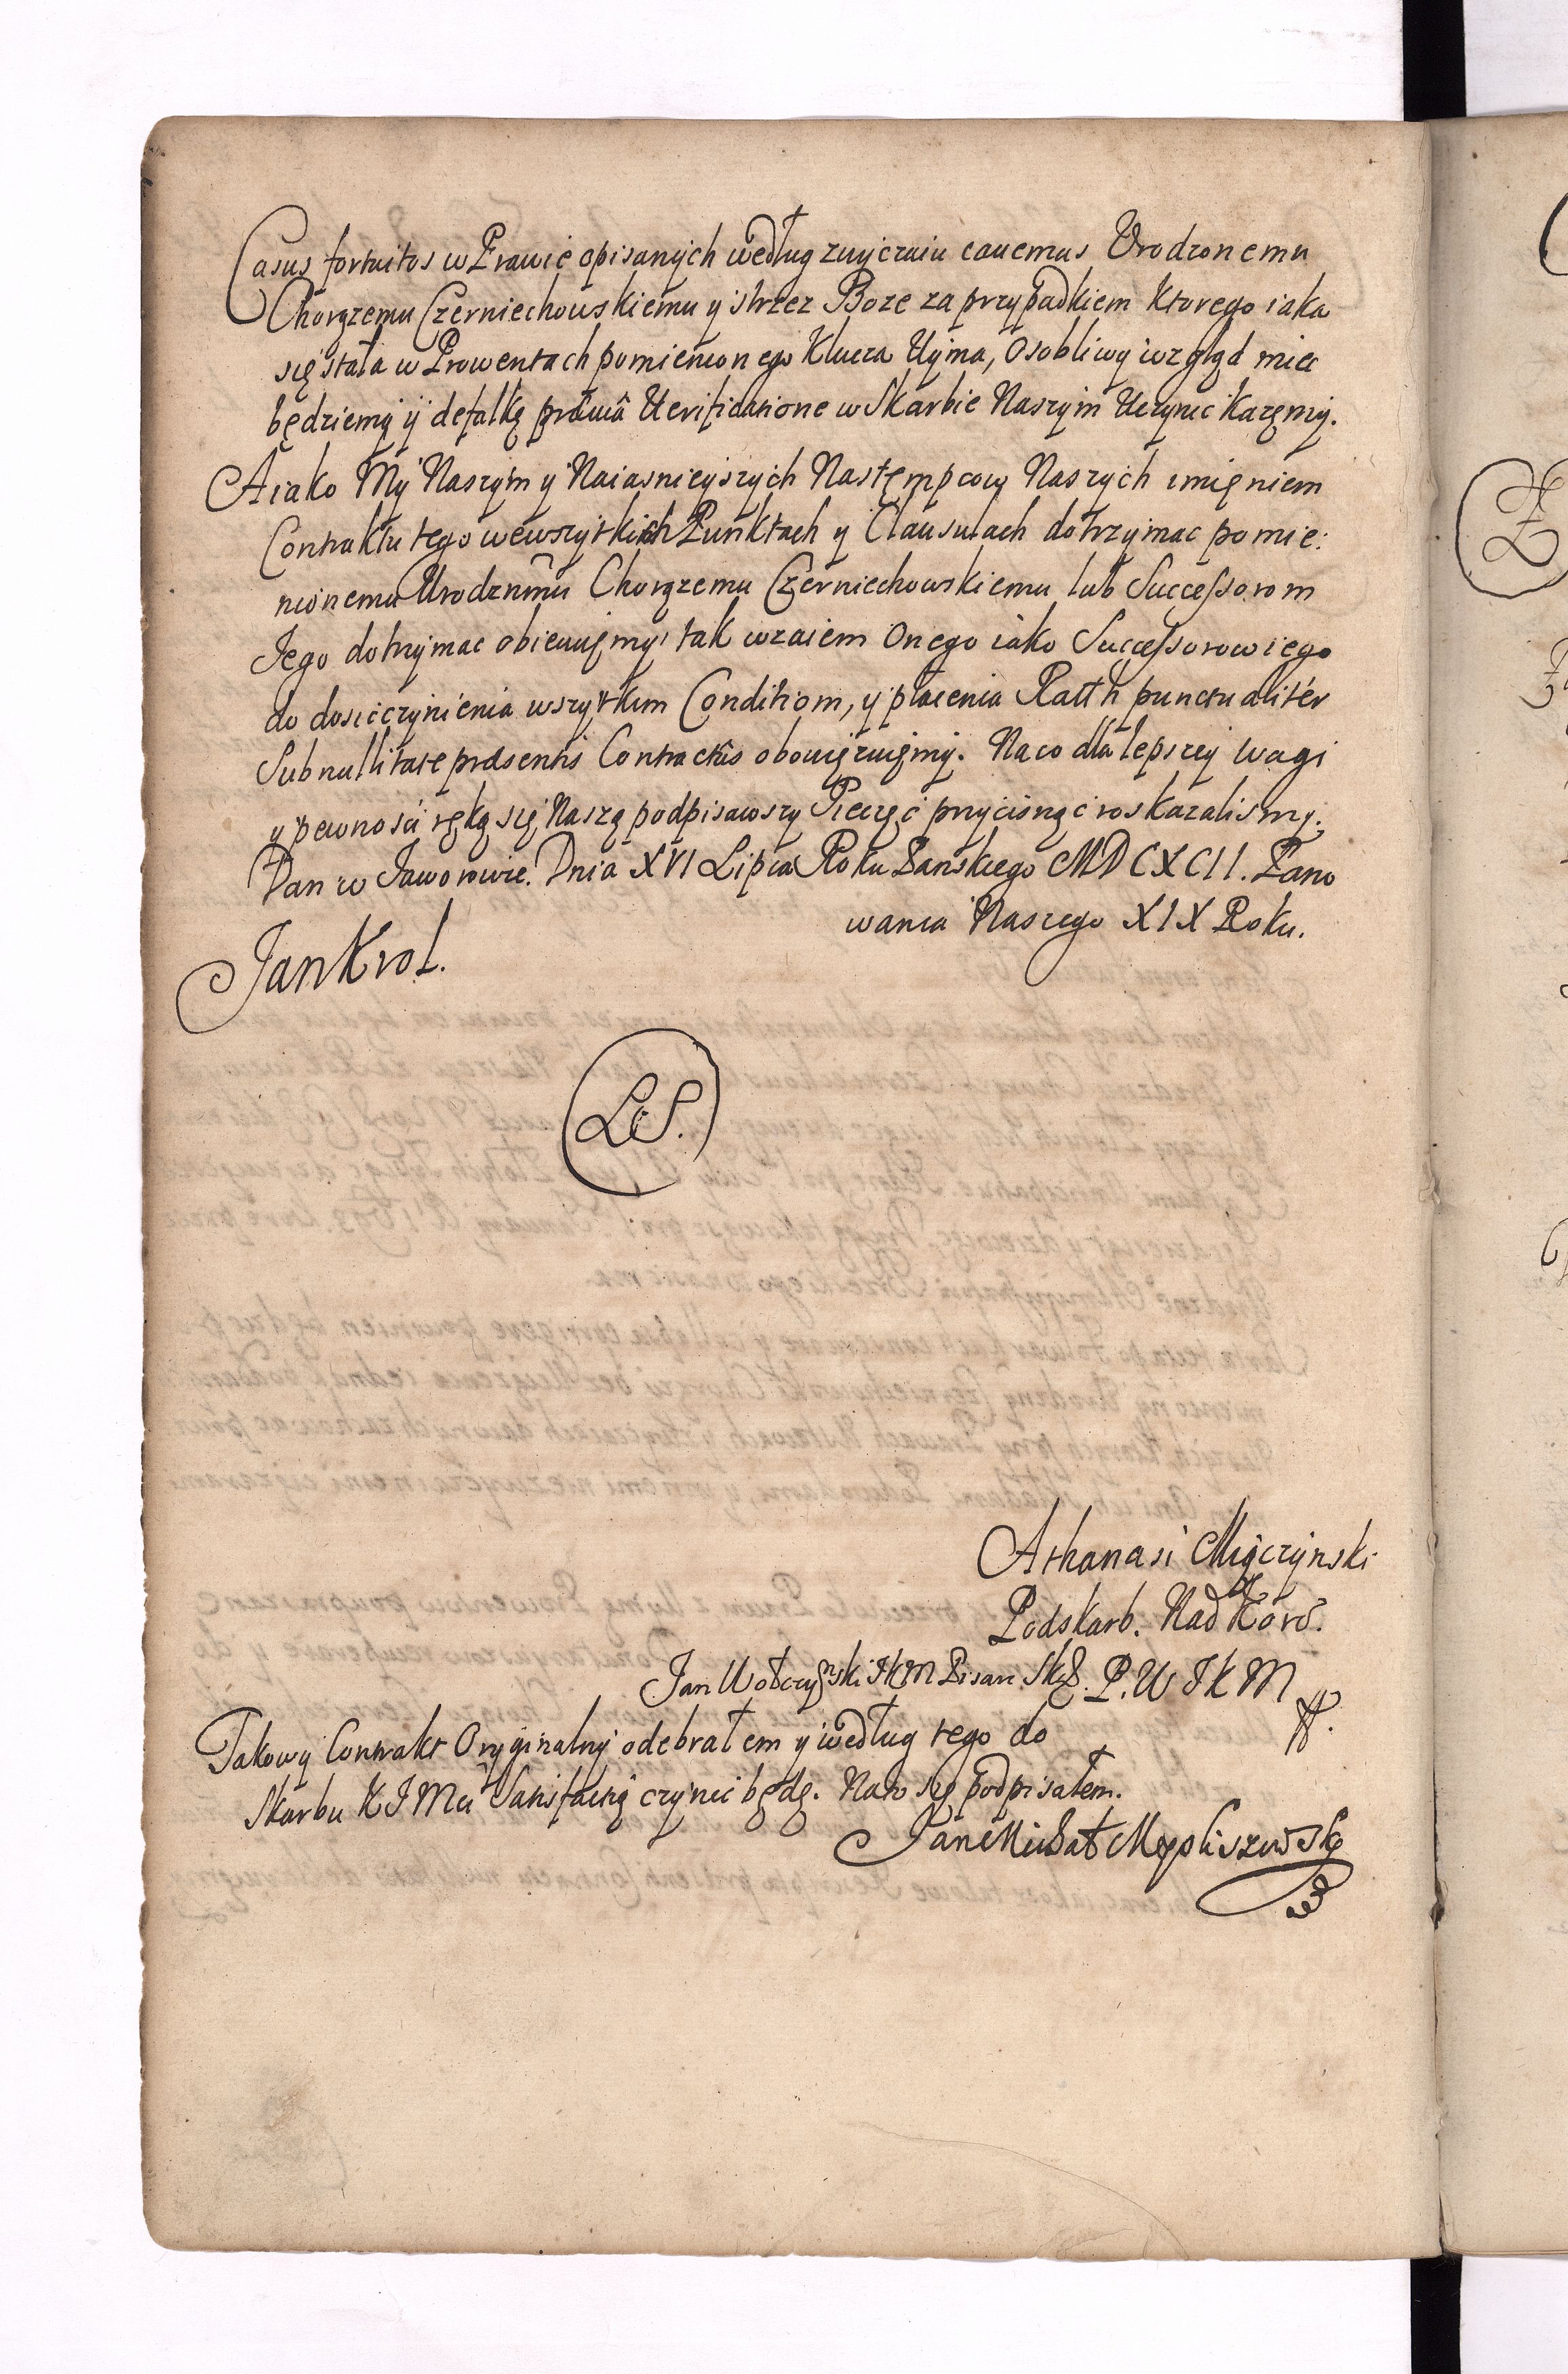 Casus fortuitos w Prawie opisanych według zwyczaiu cavemus Urodzonemu
Chorązemu Czerniechowskiemu y strzez Boze za przypadkiem ktorego iaka
się stała w Prowentach pomienionego Klucza Uyma, osobliwy wzgląd miec
będziemy y defalkę prævia Verificatione w Skarbie Naszym Uczynic każemy.
A iako My Naszym y Naiasnieyszych Następcow Naszych imięniem
Contraktu tego we wszytkich Punktach y Clausulach dotrzymac pomie:
nionemu Urodznmu Chorązemu Czerniechowskiemu lub Successorom
Jego dotrzymac obiecuięmy, tak wzaiem Onego iako Successorow iego
do dosicczynienia wszytkim Conditiom, y płacenia Ratth punctualiter
Sub nullitate præsentis Contractûs obowięzuięmy. Na co dla lepszey wagi
y pewnosci ręką się Naszą podpisawszy Pieczęć przycisnąć roskazalismy.
Dan w Jaworowie. Dnia XVI Lipca Roku Pańskiego MDCXCII. Pano
wania Naszego XIX Roku.
Jan Krol.
L.S.
Athanasi Miączynski
Podskarb. Nad Kor.
Jan Wołczyński JKM Pisarz Sk. P. W J K M
Takowy Contrakt Oryginalny odebrałem y według tego do
Skarbu KJMci Satisfactią czynic będę. Na to się podpisałem.
Jan Michał